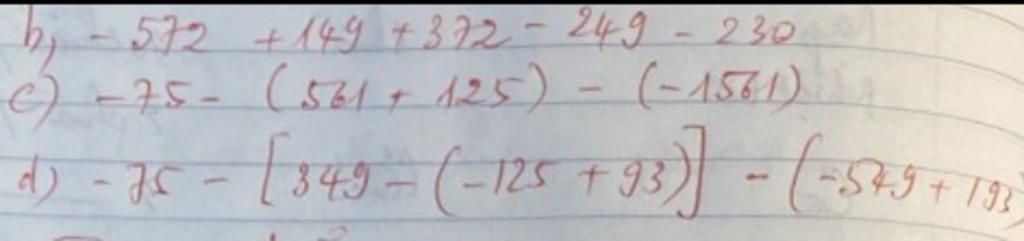 b, - 572 + 149 + 372 - 249 - 230
c) - 75 - (561 + 125) - (-1561)
d) - 75 - [349 - (-125 + 93)] - (-549 + 193)